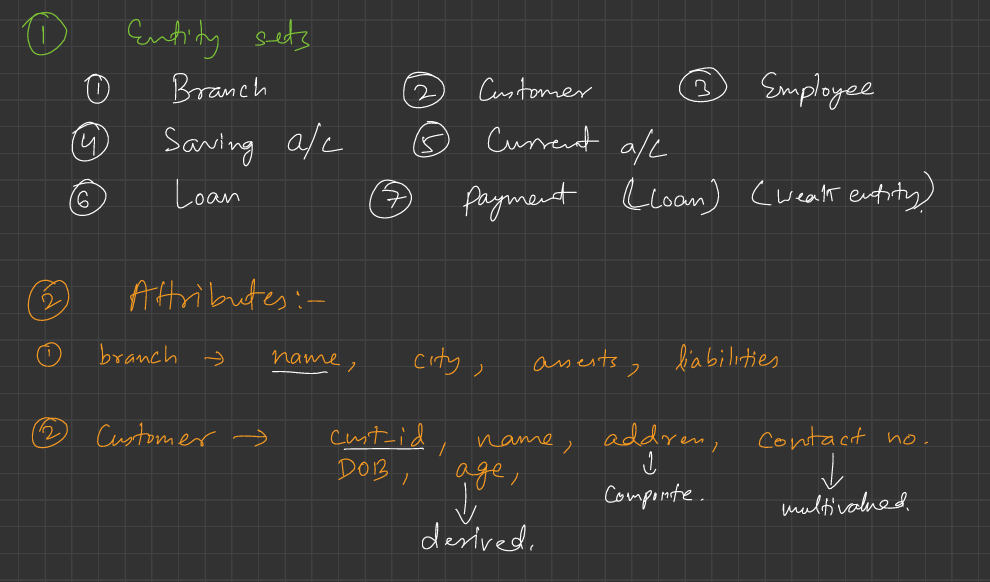 ① Entity sets
① Branch ② Customer ③ Employee
④ Saving a/c ⑤ Current a/c
⑥ Loan ⑦ payment (Loan) (weak entity)
② Attributes:-
① branch → name, city, assets, liabilities
② Customer → cust-id, name, address, contact no.
DOB, age,
↓ composite. ↓ multivalued.
↓ derived.